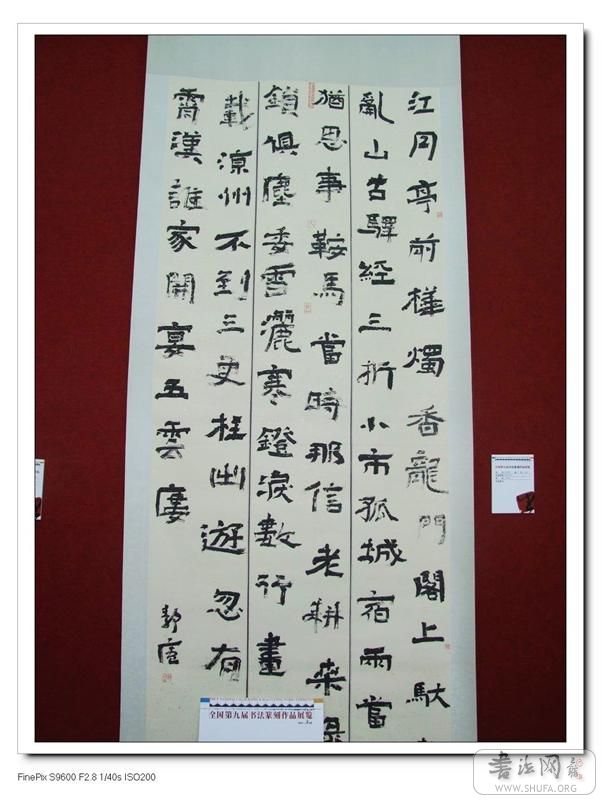 江月亭前樺燭香龍門閣上馱
亂山古驛經三折小市孤城宿兩當
猶思事鞍馬當時那信老耕桑綠
鎖俱塵委雪灑寒鐙淚數行畫
載涼州不到三更枉出遊忽有
霄漢誰家開宴五雲廔
全国第九届书法篆刻作品展览
FinePix S9600 F2.8 1/40s ISO200
书法网
WWW.SHUFA.ORG